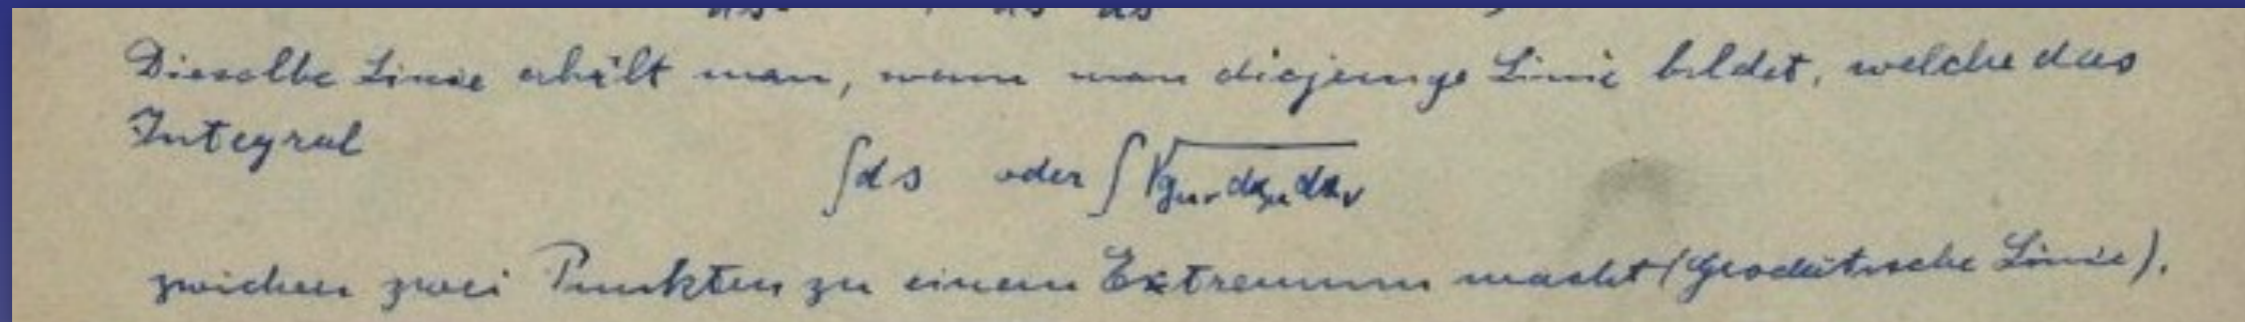 Dieselbe Linie erhält man, wenn man diejenige Linie bildet, welche das
Integral
∫ds oder ∫√(g_μν dx_μ dx_ν)
zwichen zwei Punkten zu einem Extremum macht (geodätische Linie).